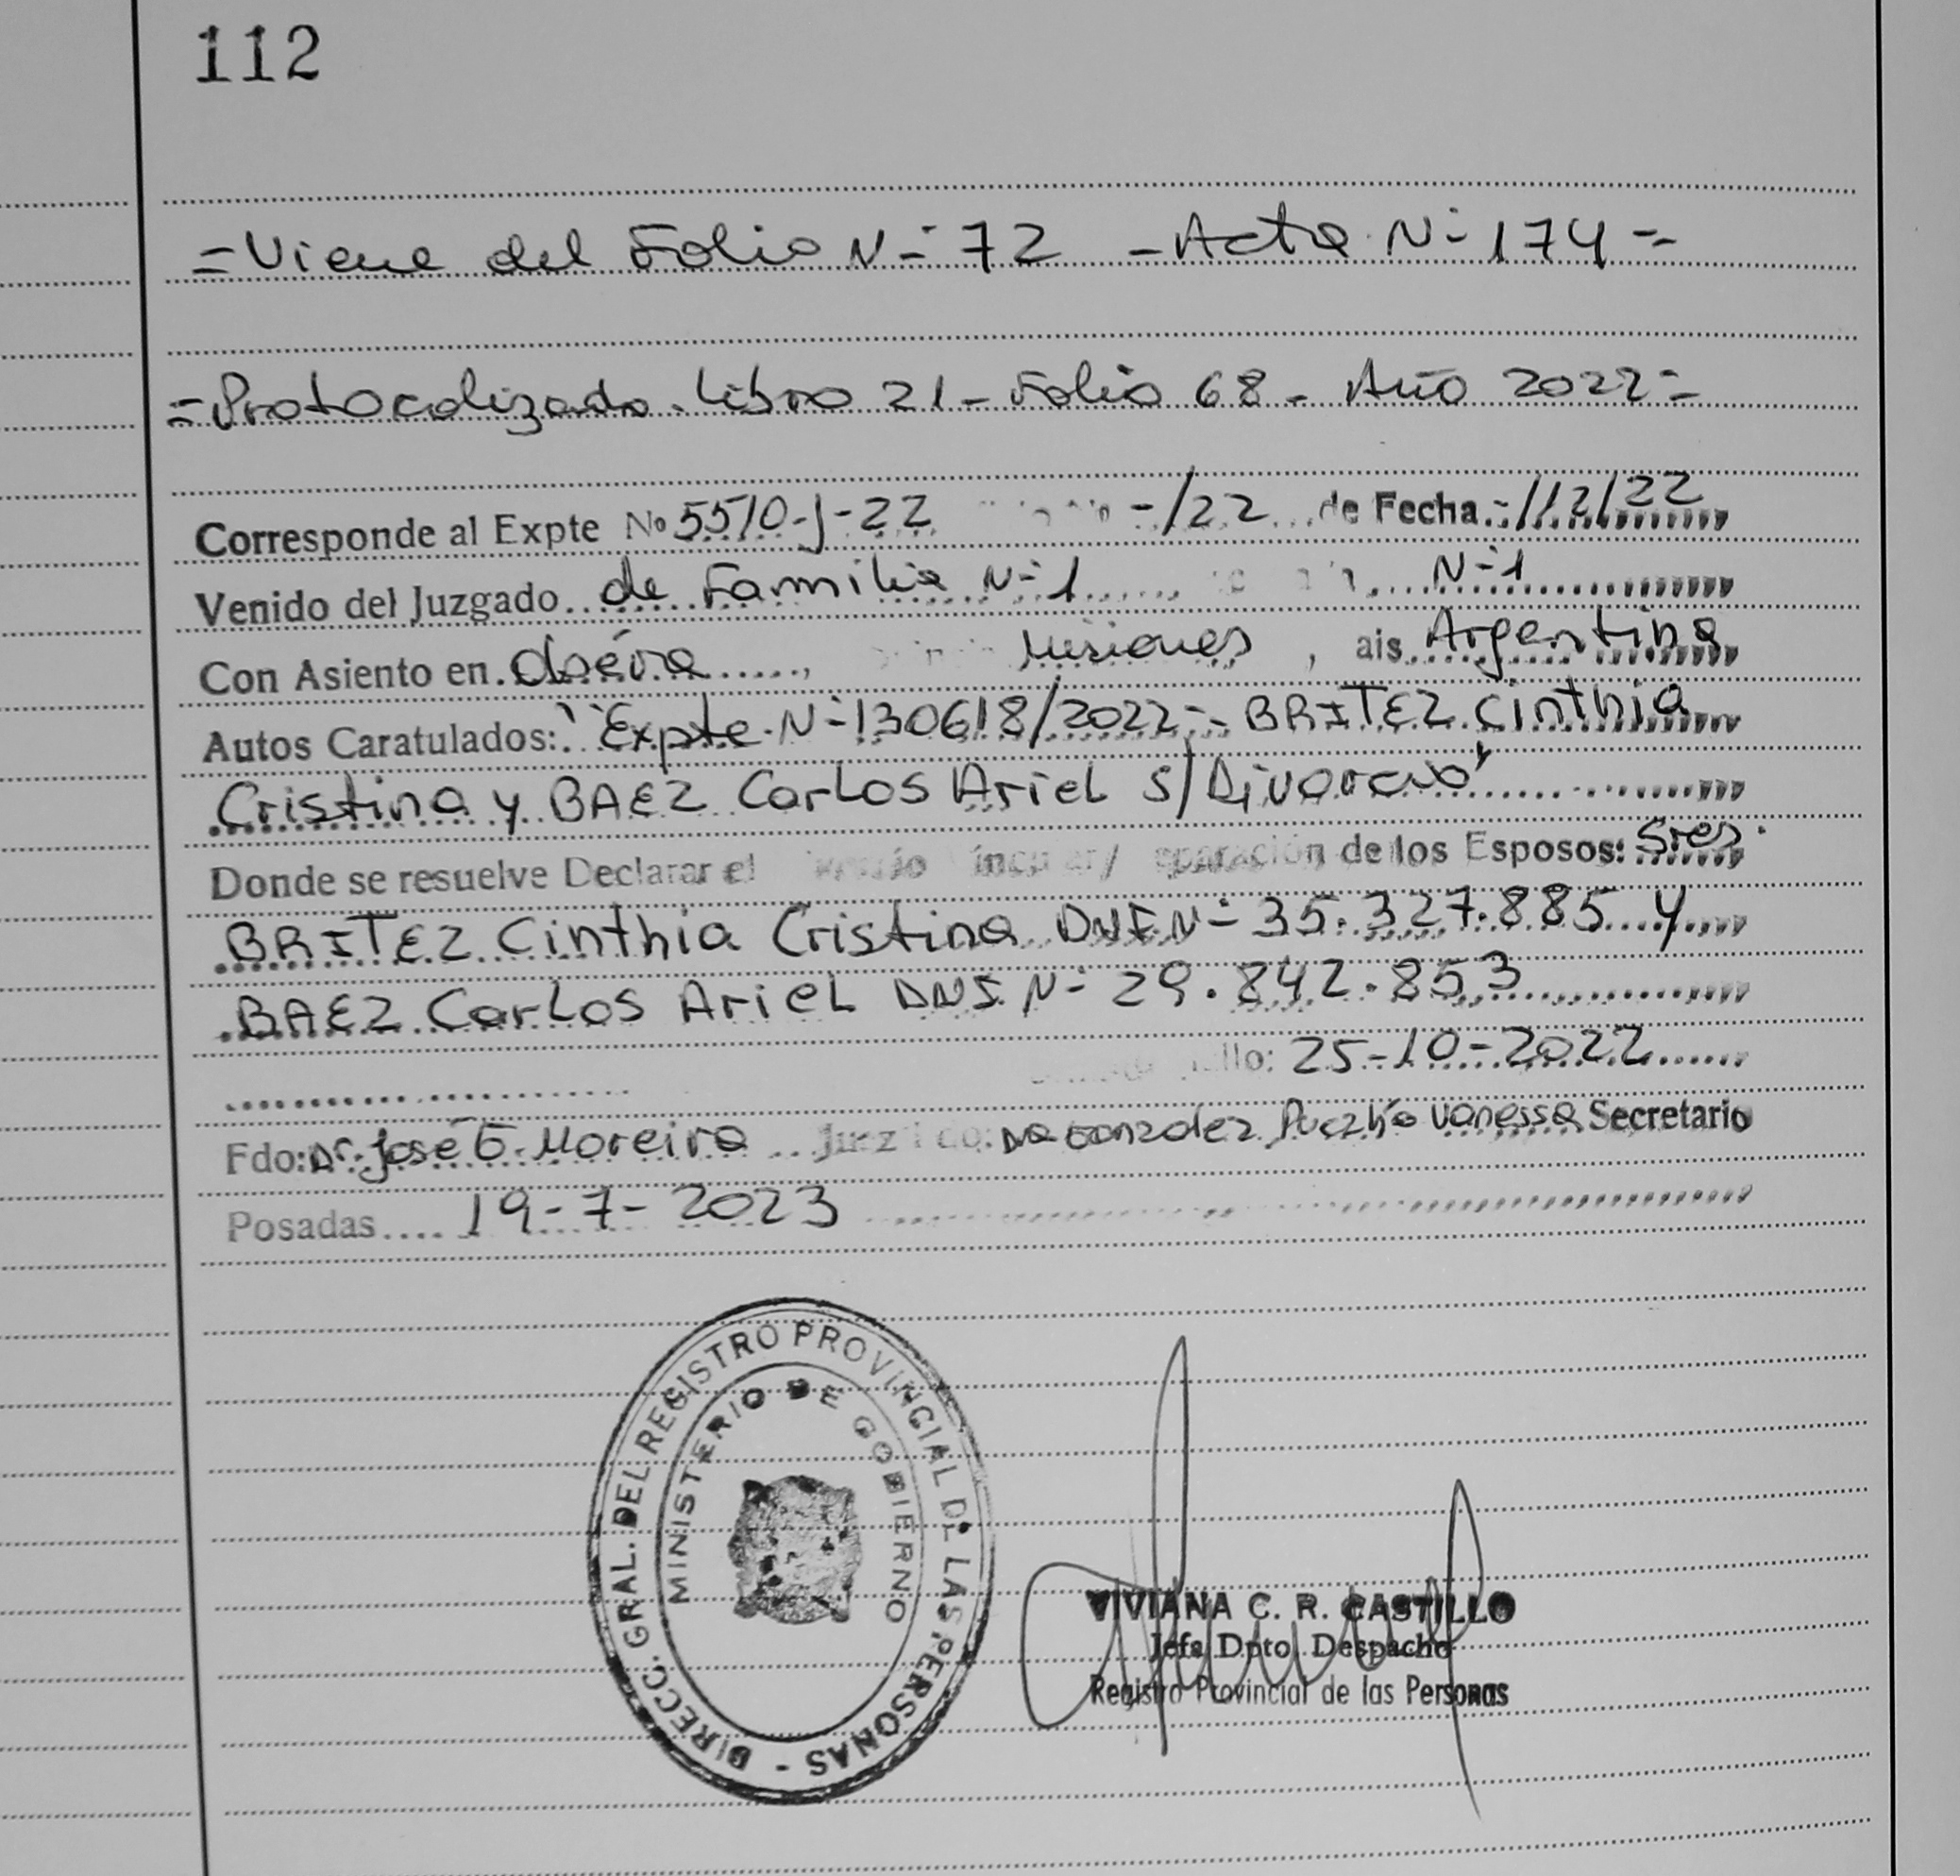 112
=Viene del Folio N- 72 - Acta N- 174 =
=Protocolizado. Libro 21 - Folio 68 - Año 2022 =
Corresponde al Expte Nº 5510-J-22 -/22 de Fecha -/12/22
Venido del Juzgado de Familia N-1 N-1
Con Asiento en Oberá, Misiones, ais Argentina
Autos Caratulados: "Expte N-130618/2022- BRITEZ Cinthia
Cristina y BAEZ Carlos Ariel S/Divorcio"
Donde se resuelve Declarar el de los Esposos: Sres.
BRITEZ Cinthia Cristina DNI N- 35.327.885 y
BAEZ Carlos Ariel DNI N- 29.842.853
llo: 25-10-2022
Fdo: Dr. José G. Moreira Juez do: Dra Gonzalez Vanessa Secretario
Posadas 19-7-2023
DIRECC. GRAL. DEL REGISTRO PROVINCIAL DE LAS PERSONAS -
MINISTERIO DE GOBIERNO
VIVIANA C. R. CASTILLO
Jefa Dpto. Despacho
Registro Provincial de las Personas